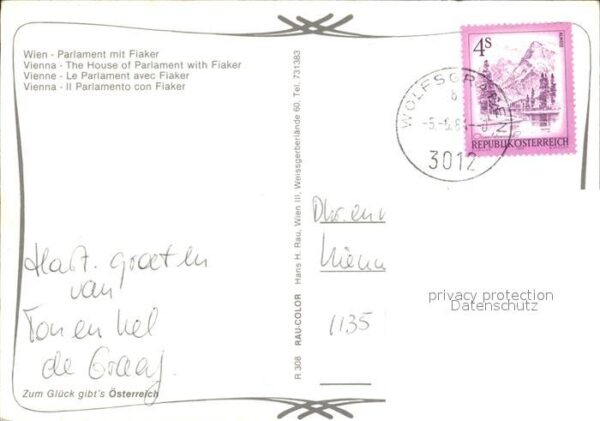 Wien - Parlament mit Fiaker
Vienna - The House of Parliament with Fiaker
Vienne - Le Parlament avec Fiaker
Vienna - Il Parlamento con Fiaker
R 308 RAU-COLOR Hans H. Rau, Wien III, Weissgerberlände 60, Tel. 731383
4S
REPUBLIK ÖSTERREICH
WOLFSGRABEN
3012
Hart. groeten
van
Ton en Nel
de Graaf.
1135
privacy protection
Datenschutz
Zum Glück gibt's Österreich